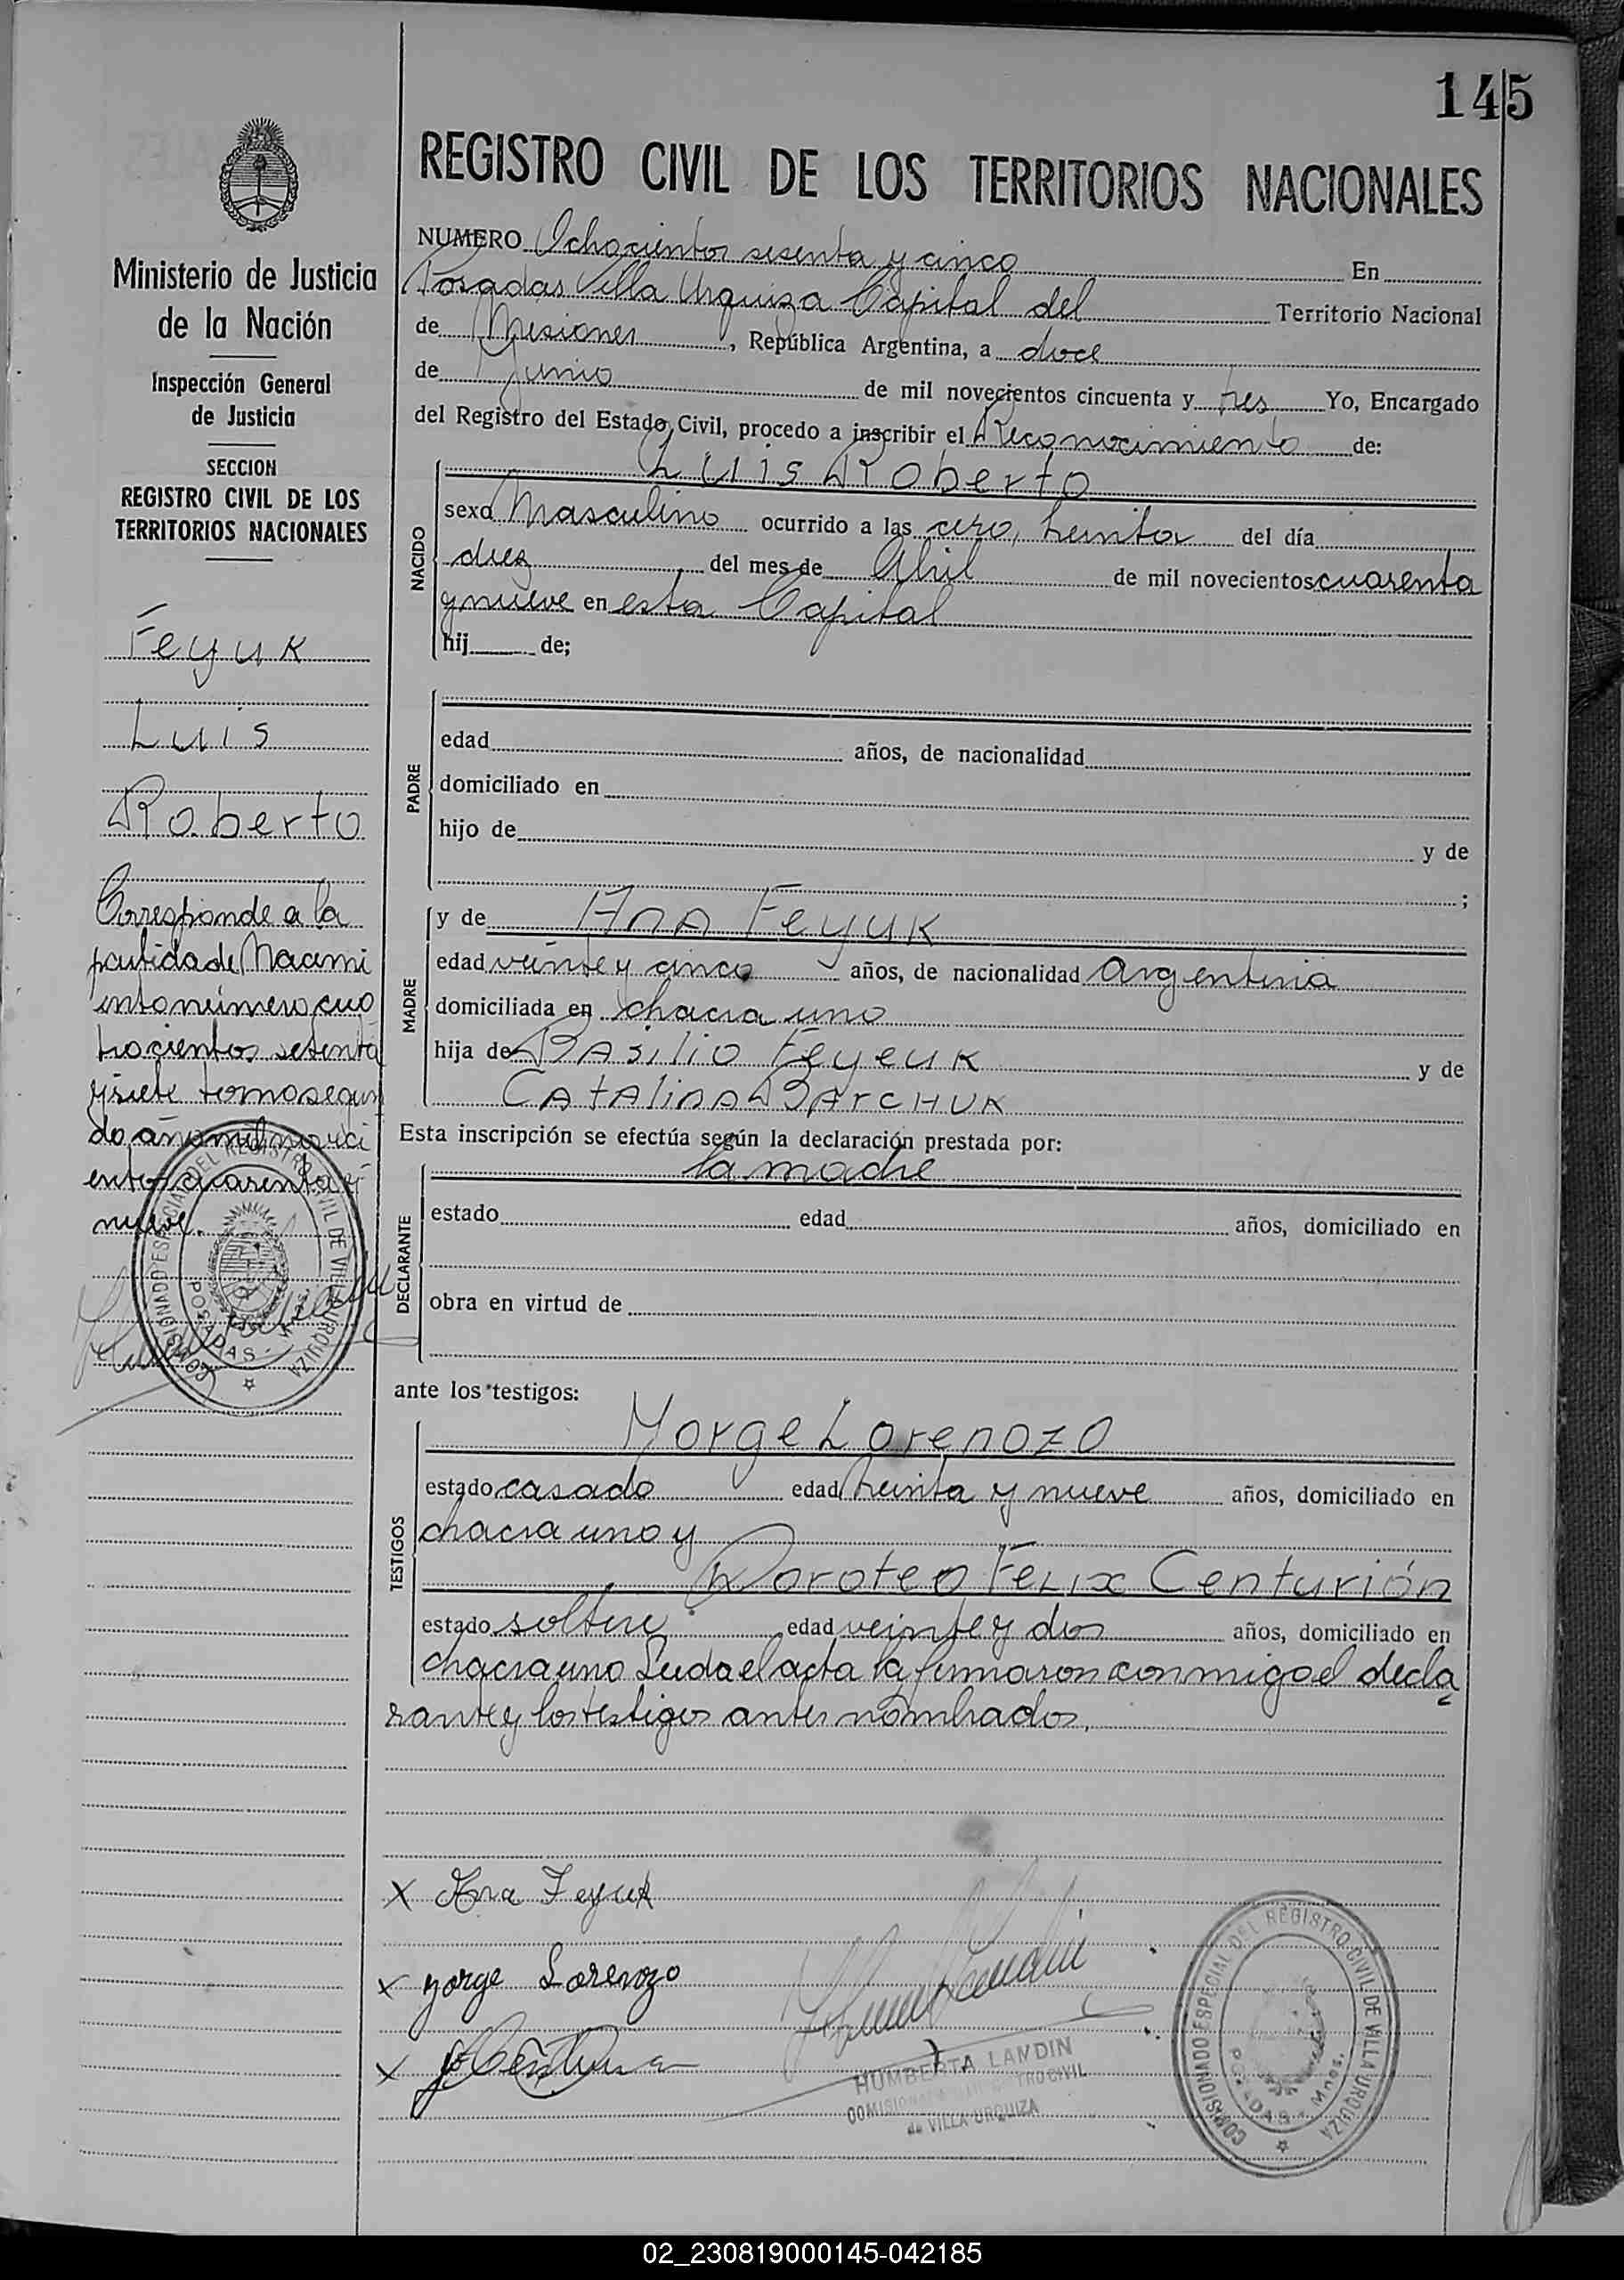 145
REGISTRO CIVIL DE LOS TERRITORIOS NACIONALES
NUMERO Ochocientos sesenta y cinco En
Posadas Villa Urquiza Capital del Territorio Nacional
de Misiones, República Argentina, a doce
de Junio de mil novecientos cincuenta y tres Yo, Encargado
del Registro del Estado Civil, procedo a inscribir el Reconocimiento de:
Luis Roberto
NACIDO
sexo Masculino ocurrido a las cero, treinta del día
diez del mes de Abril de mil novecientos cuarenta
y nueve en esta Capital
hij de;
PADRE
edad años, de nacionalidad
domiciliado en
hijo de y de
;
MADRE
y de Ana Feyuk
edad veinte y cinco años, de nacionalidad Argentina
domiciliada en chacra uno
hija de Basilio Feyeuk y de
Catalina Barchuk
Esta inscripción se efectúa según la declaración prestada por:
la madre
DECLARANTE
estado edad años, domiciliado en
obra en virtud de
ante los testigos:
TESTIGOS
Yorge Lorenozo
estado casado edad treinta y nueve años, domiciliado en
chacra uno y
Doroteo Felix Centurión
estado soltero edad veinte y dos años, domiciliado en
chacra uno Leida el acta la firmaron conmigo el decla
rante y los testigos antes nombrados.
X Ana Feyuk
X Yorge Lorenzo
X
HUMBERTA LANDIN
COMISIONADA REGISTRO CIVIL
de VILLA URQUIZA
COMISIONADO ESPECIAL DEL REGISTRO CIVIL DE VILLA URQUIZA
POSADAS - Mnes.
Ministerio de Justicia
de la Nación
Inspección General
de Justicia
SECCION
REGISTRO CIVIL DE LOS
TERRITORIOS NACIONALES
Feyuk
Luis
Roberto
Corresponde a la
partida de Nacimi
ento número cua
trocientos setenta
y siete tomo segun
do año mil noveci
entos cuarenta y
nueve.
COMISIONADO ESPECIAL DEL REGISTRO CIVIL DE VILLA URQUIZA
POSADAS - Mnes.
02_230819000145-042185